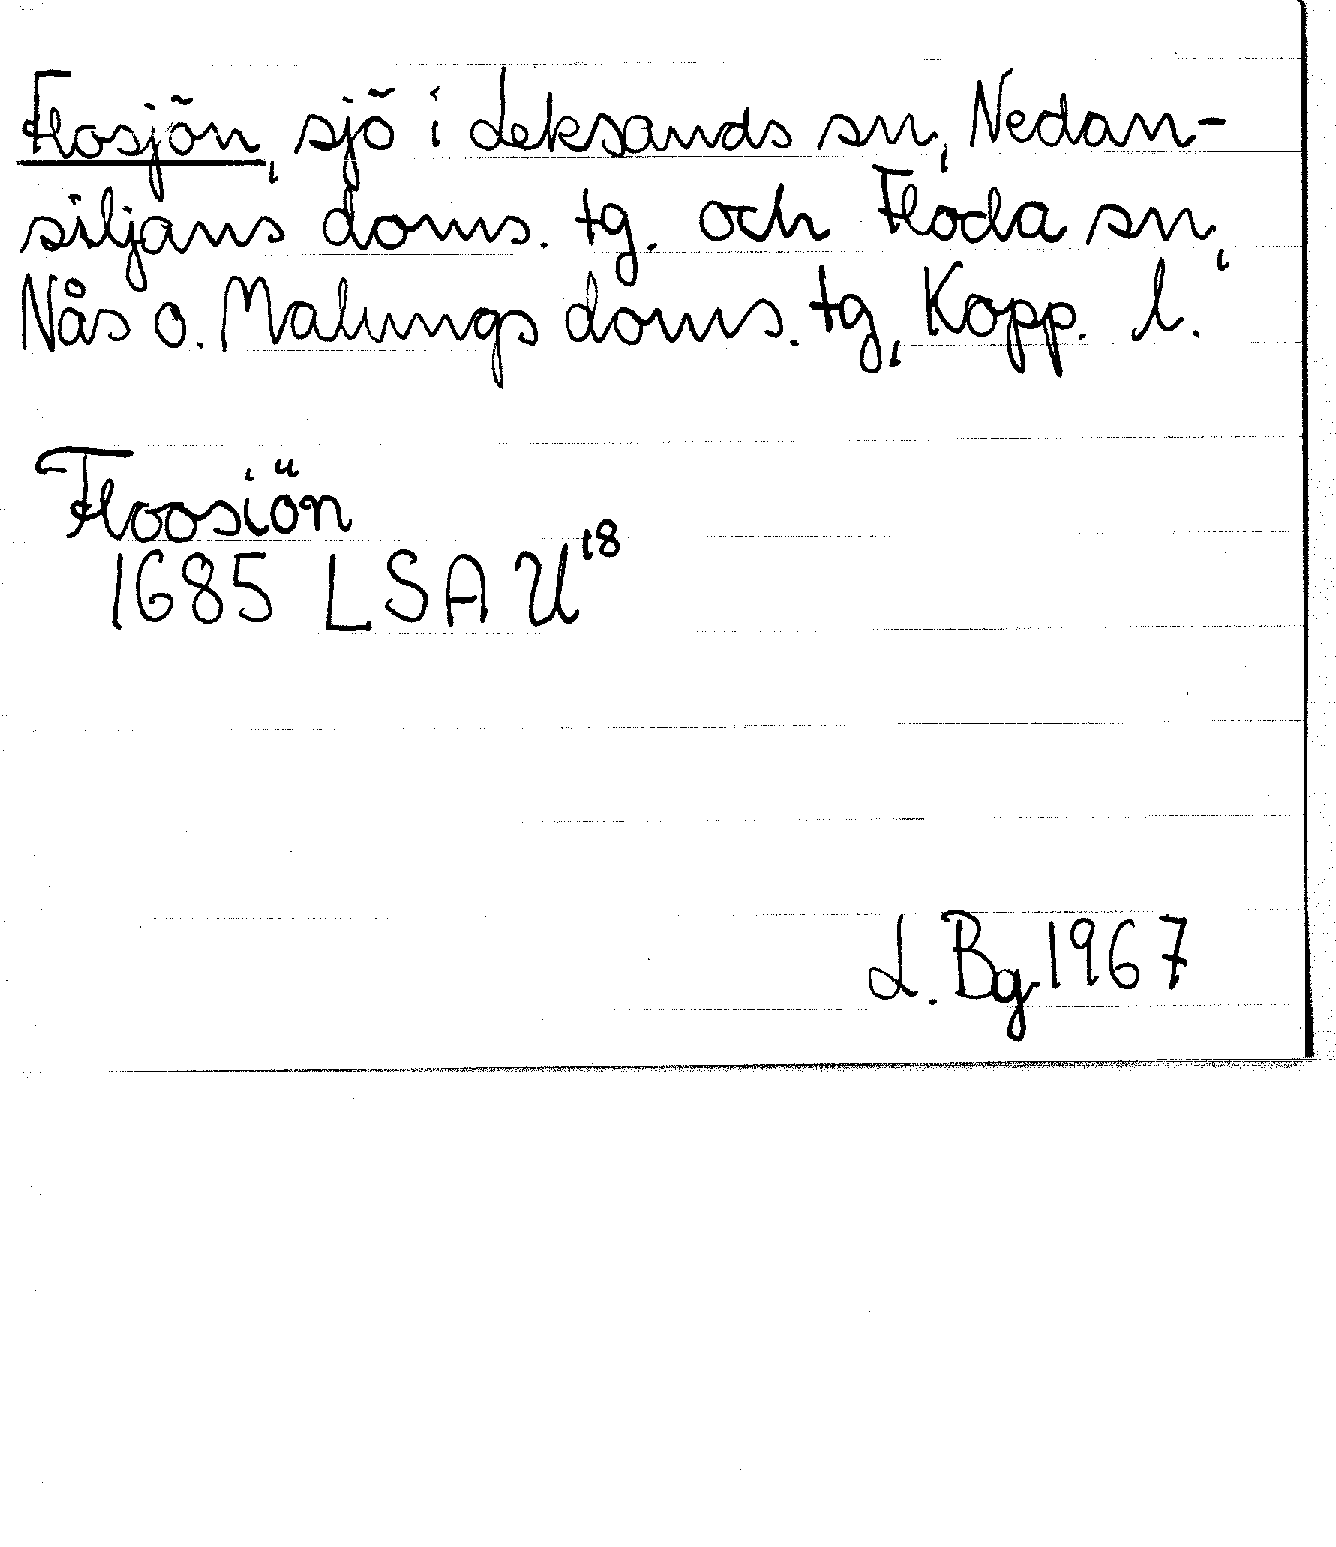 Flosjön, sjö i Leksands sn, Nedan-
siljans doms. tg. och Floda sn,
Nås o. Malungs doms. tg, Kopp. l.
Floosiön
1685 LSA U18
L. Bg 1967